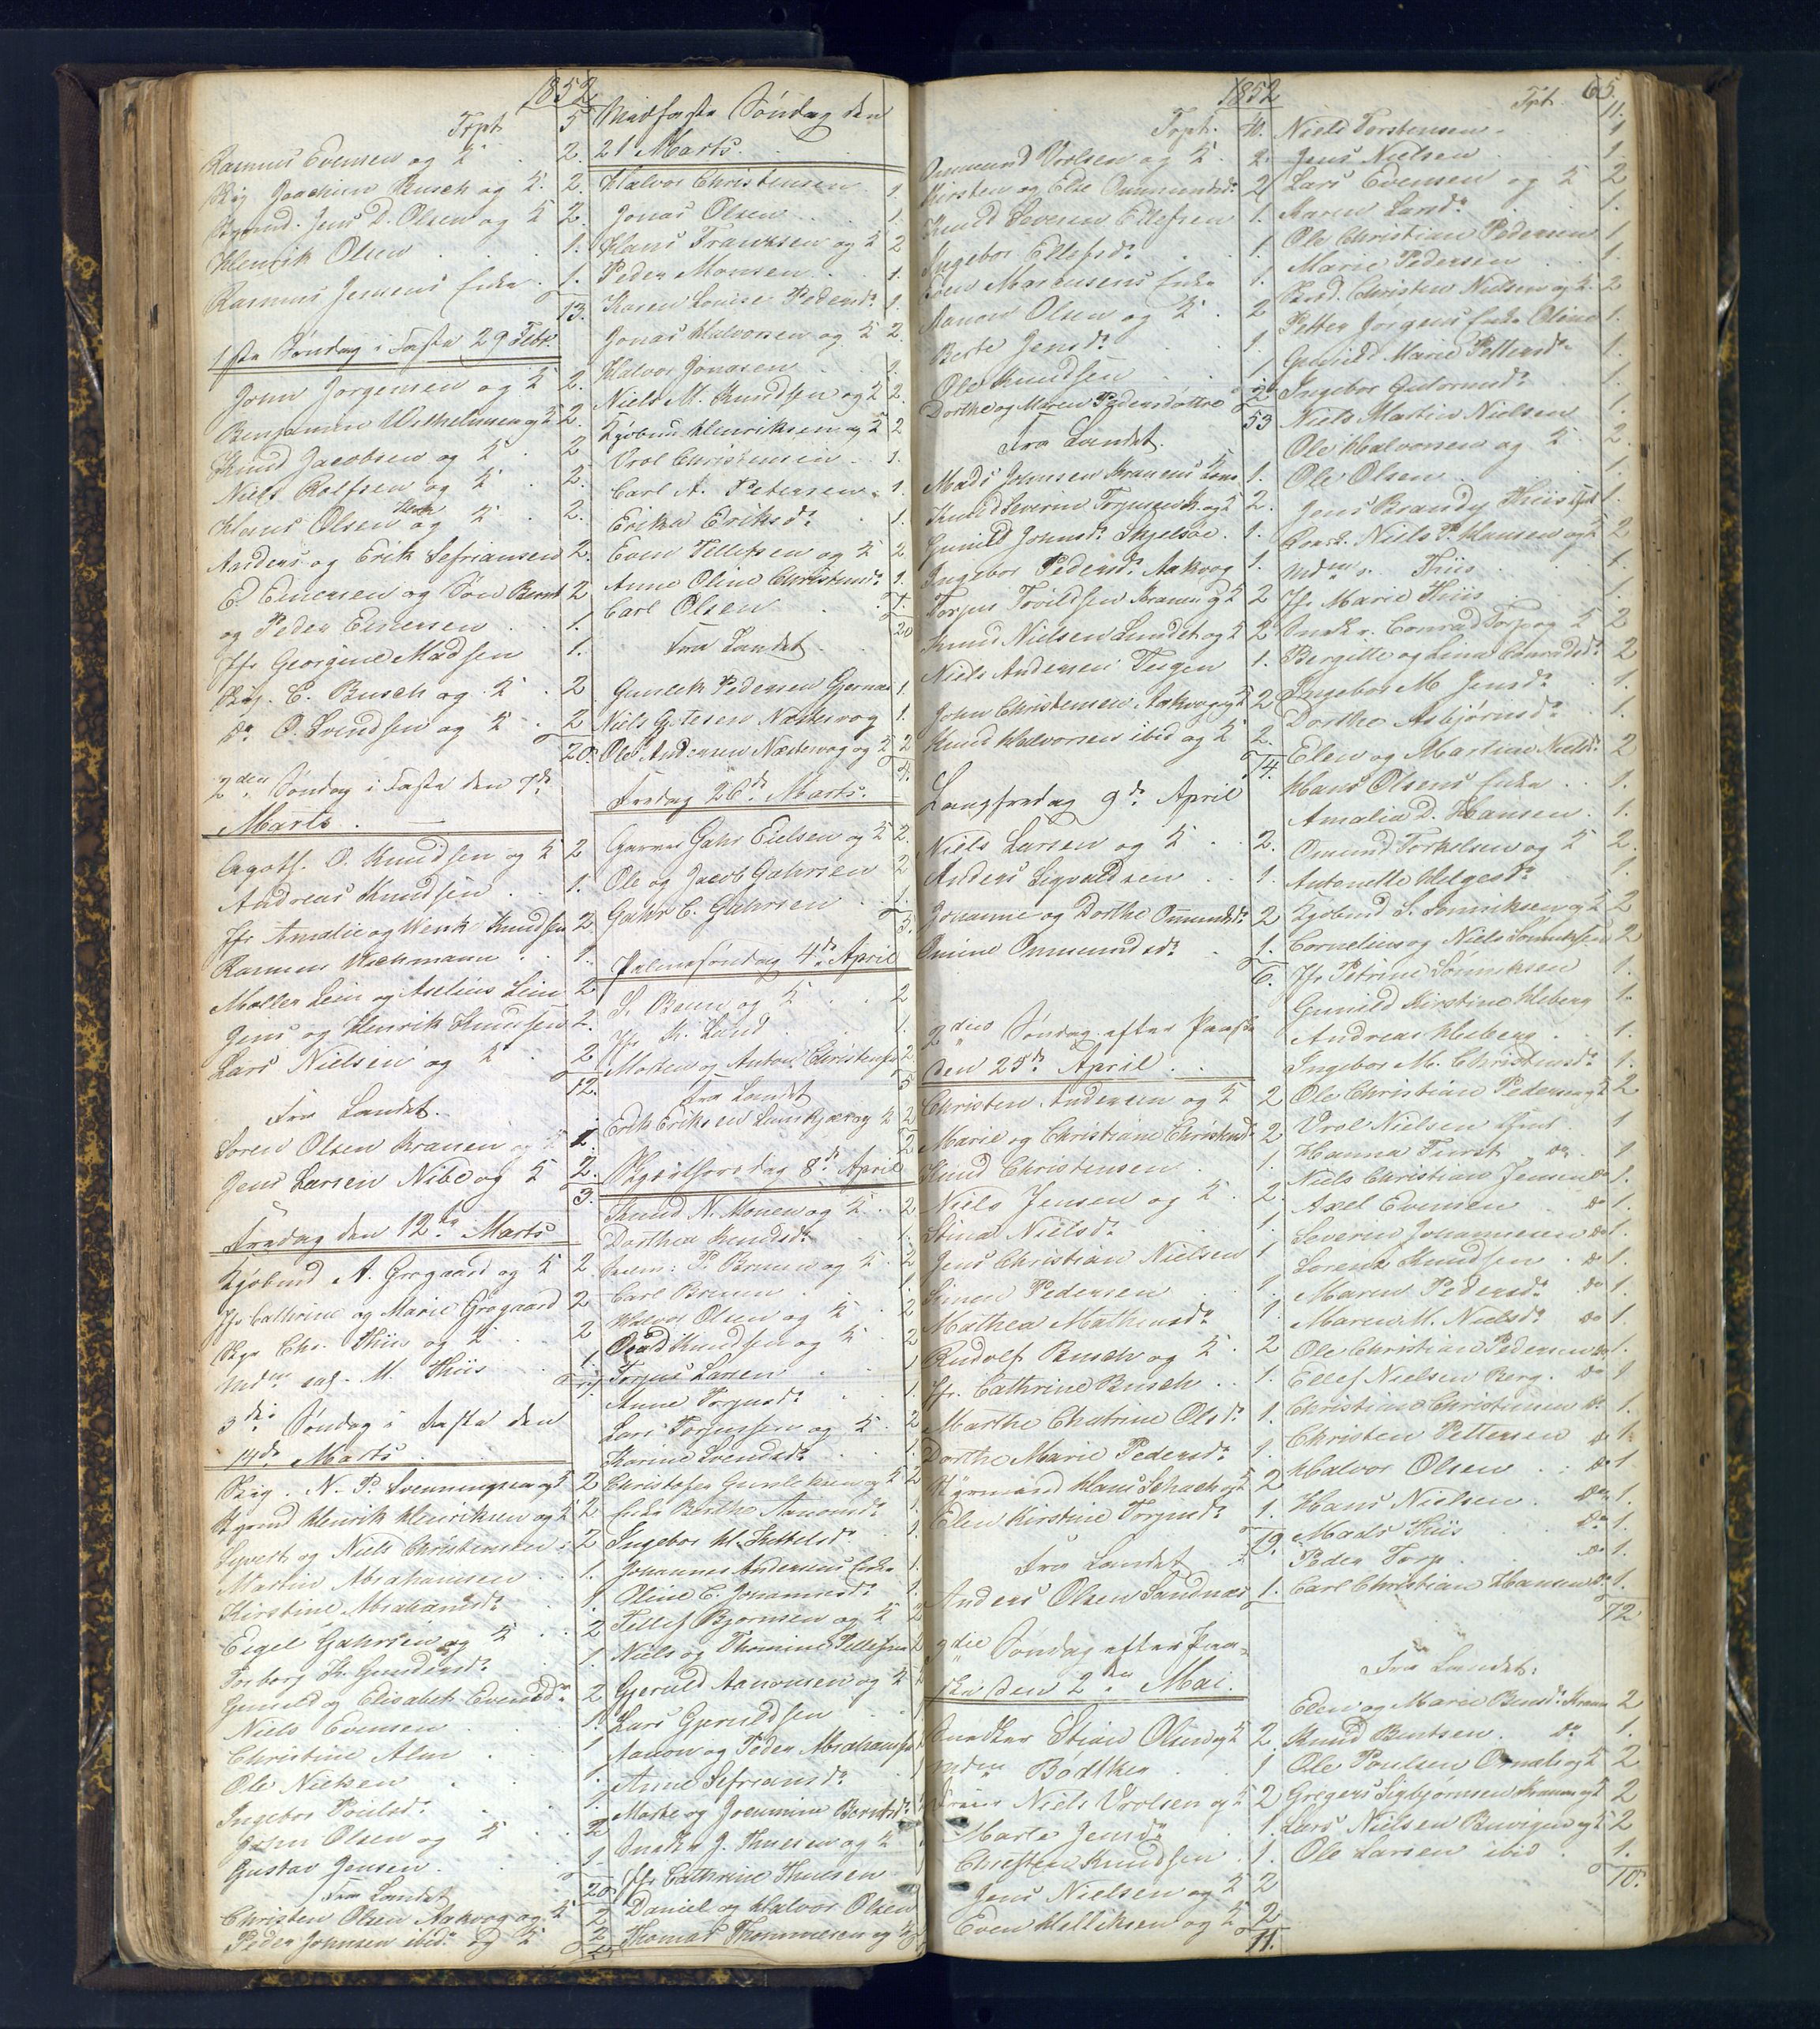 1852
Trpt. 5
Rasmus Evensen og K 2.
Skip. Joachim Busch og K. 2.
Styrmd. Jens D. Olsen og K 2.
Henrik Olsen 1.
Rasmus Jensens Enke 1.
13.
1ste Søndag i Faste 29 Febr.
John Jørgensen og K 2.
Benjamin Wilhelmsen og K 2.
Knud Jacobsen og K 2
Niels Rolfsen og K 2.
Hans Olsen og K 2.
Anders og Erik Sefriansen 2.
E. Einersen og Søn Bernt 2
og Peder Einersen 1.
Jfr Georgine Madsen 1.
Skip. C. Busch og K 2
do O. Svendsen og K 2
20.
2den Søndag i Faste den 7de
Marts.
O. Knudsen og K 2
Andreas Knudsen 1.
Jfr Amalie og Knudsen 2
Rasmus Wachmann 1.
Møller Lein og Aselius Lein 2
Jens og Henrik Knudsen 2.
Lars Nielsen og K 2
12.
Fra Landet.
Søren Olsen Kranen 1.
Jens Larsen Nibe og K 2.
3.
Fredag den 12te Marts
Kjøbmd A. Grøgaard og K 2.
Jfr Cathrine og Marie Grøgaard 2
Chr. Thiis og K 2
Mdm sal. M. Thiis 1.
3die Søndag i Faste den
14de Marts
Skip. N. P. Svenningsen og K 2
Styrmd Henrik Henriksen og K 2
Syvert og Niels Christensen 2
Martin Abrahamsen 1.
Kirstine Abrahamsd. 1.
Eigel Gahrsen og K 2
Torborg K. Gundersd. 1
Gunild og Elisabet Evensd. 2
Niels Evensen 1.
Christine Alm 1
Ole Nielsen 1.
Ingebor Poulsd. 1.
Olsen og K 2
Gustav Jensen 1.
20
Fra Landet
Christen Olsen Aakvog og K 2
Peder Johnsen ibid. og K 2
4
Midfaste Søndag den
21 Marts.
Halvor Christensen 1.
Jonas Olsen 1.
Hans Frantzsen og K 2
Peder Monsen 1.
Karen Lovise Pedersd. 1.
Jonas Halvorsen og K 2.
Halvor Jonasen 1.
Niels M. Knudsen og K 2.
Kjøbmd Henriksen og K 2
Vrol Christensen 1.
Carl A. Petersen 1.
Erika Eriksd. 1.
Even Tellefsen og K 2
Anne Oline Christensd. 1.
Carl Olsen 1.
20
Fra Landet
Gunlek Pedersen Gjernæs 1.
Niels G. Næstervog 1.
Ole Andersen Næstervog og K 2
4.
Fredag 26de Marts.
Garver Gahr Eielsen og K 2.
Ole og Jacob Gahrsen 2
Gahr C. Gahrsen 1.
5.
Palmesøndag 4de April
S. Bruun og K 2
Jfr K. Lund 1.
Morten og Anton Christensen 2.
5
Fra Landet
Erik Eriksen og K 2
2
Skjærthorsdag 8de April
Knud N. Monen og K 2
Dorthea Knudsd. 1.
P. Bruun og K 2
Carl Bruun 1
Halvor Olsen og K 2
Knudsen og K 2
Torjus Larsen 1
Anne Torjusd. 1.
Lars Torjussen og K 2
Karine Svendsd. 1.
Christofer Gunleksen og K 2
Enke Berthe Aanonsd. 1.
Ingebor M. Kittelsd. 1.
Johannes Andersens Enke 1.
Oline E. Johannesd. 1.
Tellef Bjørnsen og K 2
Niels og Thomine Tellefsen 2
Gjeruld Aanonsen og K 2
Lars Gjeruldsen 1
Aanon og Peder Abrahamsen
Anne Sefriansd.
Marte og Joramine Berntsd.
Snedk. J. Knudsen og K
Jfr Cathrine Knudsen
Daniel og Halvor Olsen
Thomas Thommesen og K
1852
Trpt. 40.
Ommund Vrolsen og K 2
Kirsten og Else Ommundsd. 2
Knud Severin Ellefsen 1.
Ingebor Ellefsd. 1
Even Mortensens Enke 1
Aanon Olsen og K 2
Berte Jensd. 1.
Ole Knudsen 1
Dorthe og Maren Pedersdøttre 2
53
Fra Landet.
Mads Johnsen Kranens 1.
Knud Severin Torjussen og K 2.
Gunild Johnsd. Skjelsøe 1.
Ingebor Pedersd. Aakvog 1.
Torjus Troildsen Kranen og K 2
Knud Nielsen Lundet og K 2
Niels Andersen Teigen 1.
John Christensen Aakvog og K 2
Knud Halvorsen ibid og K 2.
14.
Langfredag 9de April
Niels Larsen og K 2.
Anders Sigvaldsen 1.
Johanne og Dorthe Ommundsd. 2
Omine Ommundsd. 1.
6.
2den Søndag efter Paaske
den 25de April
Christen Andersen og K 2
Marie og Christiane Christensd. 2
Knud Christensen 1.
Niels Jensen og K 2.
Stina Nielsd. 1.
Jens Christian Nielsen 1
Simon Pedersen 1.
Mathea Mathiasd. 1.
Rudolf Busch og K 2
Jfr. Cathrine Busch 1.
Marthe Chatrine Olsd. 1.
Dorthe Marie Pedersd. 1.
Styrmand Hans Schach og K 2
Elen Kirstine Torjusd. 1.
19.
Fra Landet
Anders Olsen Sandnæs 1.
die Søndag efter Paa-
ske den 2den Mai.
Snedker Stian Olsen og K 2.
Mdm Bødtker 1
Niels Vrolsen og K 2
Marte Jensd. 1.
Christen Knudsen 1.
Jens Nielsen og K 2
Even Helliksen og K 2
11.
65.
Trpt. 11.
Niels Torstensen 1
Jens Nielsen 1.
Lars Evensen og K 2
Maren Larsd. 1.
Ole Christian Pedersen 1
Marie Pedersen 1.
Christen Nielsen og K 2
Petter Jørgens Enke Oline 1.
Gunild Marie Pettersd. 1.
Ingebor Gutormsd. 1.
Niels Martin Nielsen 1.
Ole Halvorsen og K 2.
Ole Olsen 1.
Jens Brandy Thiis 1.
Niels P. Hansen og K 2
Mdm s. Thiis 1.
Jfr Marie Thiis 1.
Snedkr. Conrad Torp og K 2
Bergitte og Lina Conradsd. 2
Ingebor M. Jensd. 1.
Dorthe Asbjørnsd. 1.
Elen og Martine Nielsd. 2
Hans Olsens Enke 1.
Amalia D. Hansen 1.
Omund Torkelsen og K 2.
Antonette Helgesd. 1.
Kjøbmd S. Sønniksen og K 2
Cornelius og Niels Sønniksen 2
Jfr Petrine Sønniksen 1.
Gunild Kirstine Heberg 1.
Andreas Heberg 1.
Ingebor M. Christensd. 1.
Ole Christian Pedersen og K 2.
Vrol Nielsen 1
Hanna Furst do 1
Niels Christian Jensen do 1.
Axel Evensen do 1.
Severin Johannesen do 1.
Sørens Knudsen do 1.
Maren Pedersd. do 1.
Maren M. Nielsd. do 1.
Ole Christian Pedersen do 1.
Ellef Nielsen Berg do 1
Christiane Christensen do 1.
Christen Pettersen do 1.
Halvor Olsen do 1
Hans Nielsen do 1.
Mads Thiis do 1.
Peder Torp do 1.
Carl Christian Hansen do 1.
72
Fra Landet:
Elen og Maren Bentsd. Kranen 2
Knud Bentsen do 1.
Ole Poulsen og K 2
Gregers Sigbjørnsen Kranen og K 2
Lars Nielsen Buvigen og K 2
Ole Larsen ibid 1.
10.